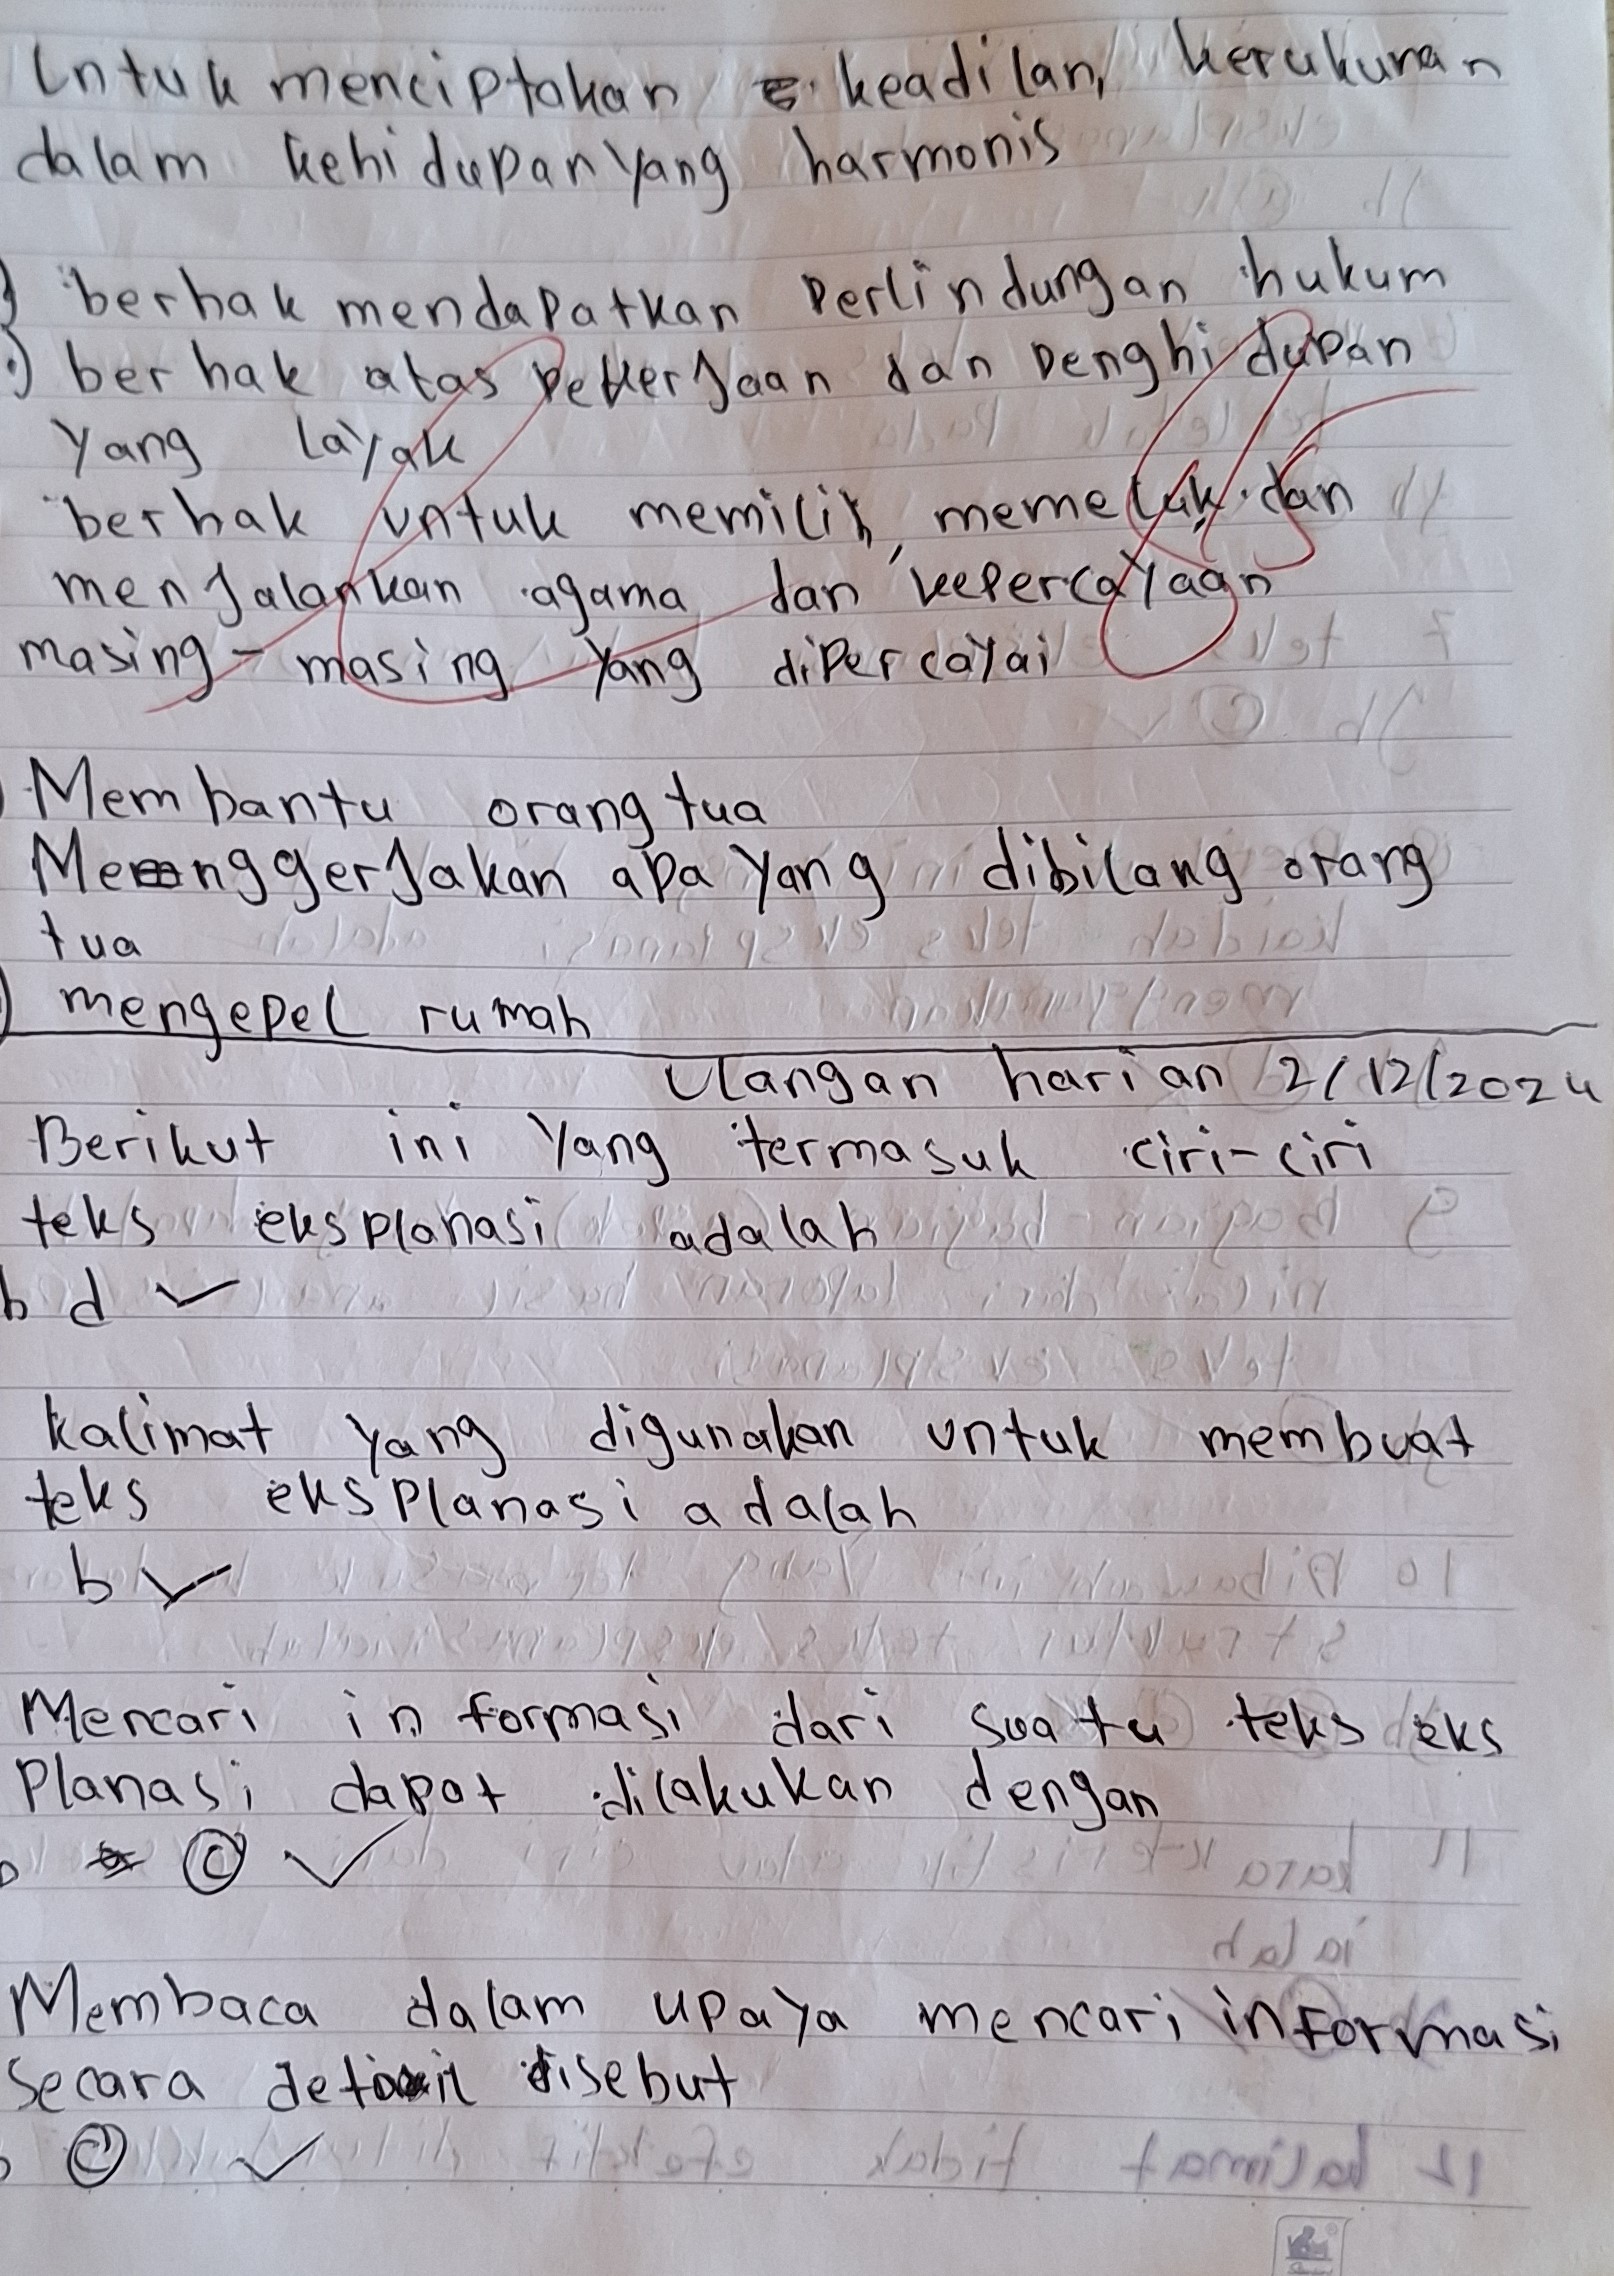 Untuk menciptakan keadilan, kerukunan
dalam kehidupan yang harmonis
berhak mendapatkan perlindungan hukum
.) berhak atas pekerjaan dan penghidupan
yang layak
berhak untuk memilih, memeluk dan
menjalankan agama dan kepercayaan
masing-masing yang dipercayai
Membantu orang tua
Menggerjakan apa yang dibilang orang
tua
) mengepel rumah
Ulangan harian 2/12/2024
Berikut ini yang termasuk ciri-ciri
teks eksplanasi adalah
b d ✓
kalimat yang digunakan untuk membuat
teks eksplanasi adalah
b ✓
Mencari informasi dari suatu teks eks
planasi dapat dilakukan dengan
c ✓
Membaca dalam upaya mencari informasi
secara detail disebut
c ✓